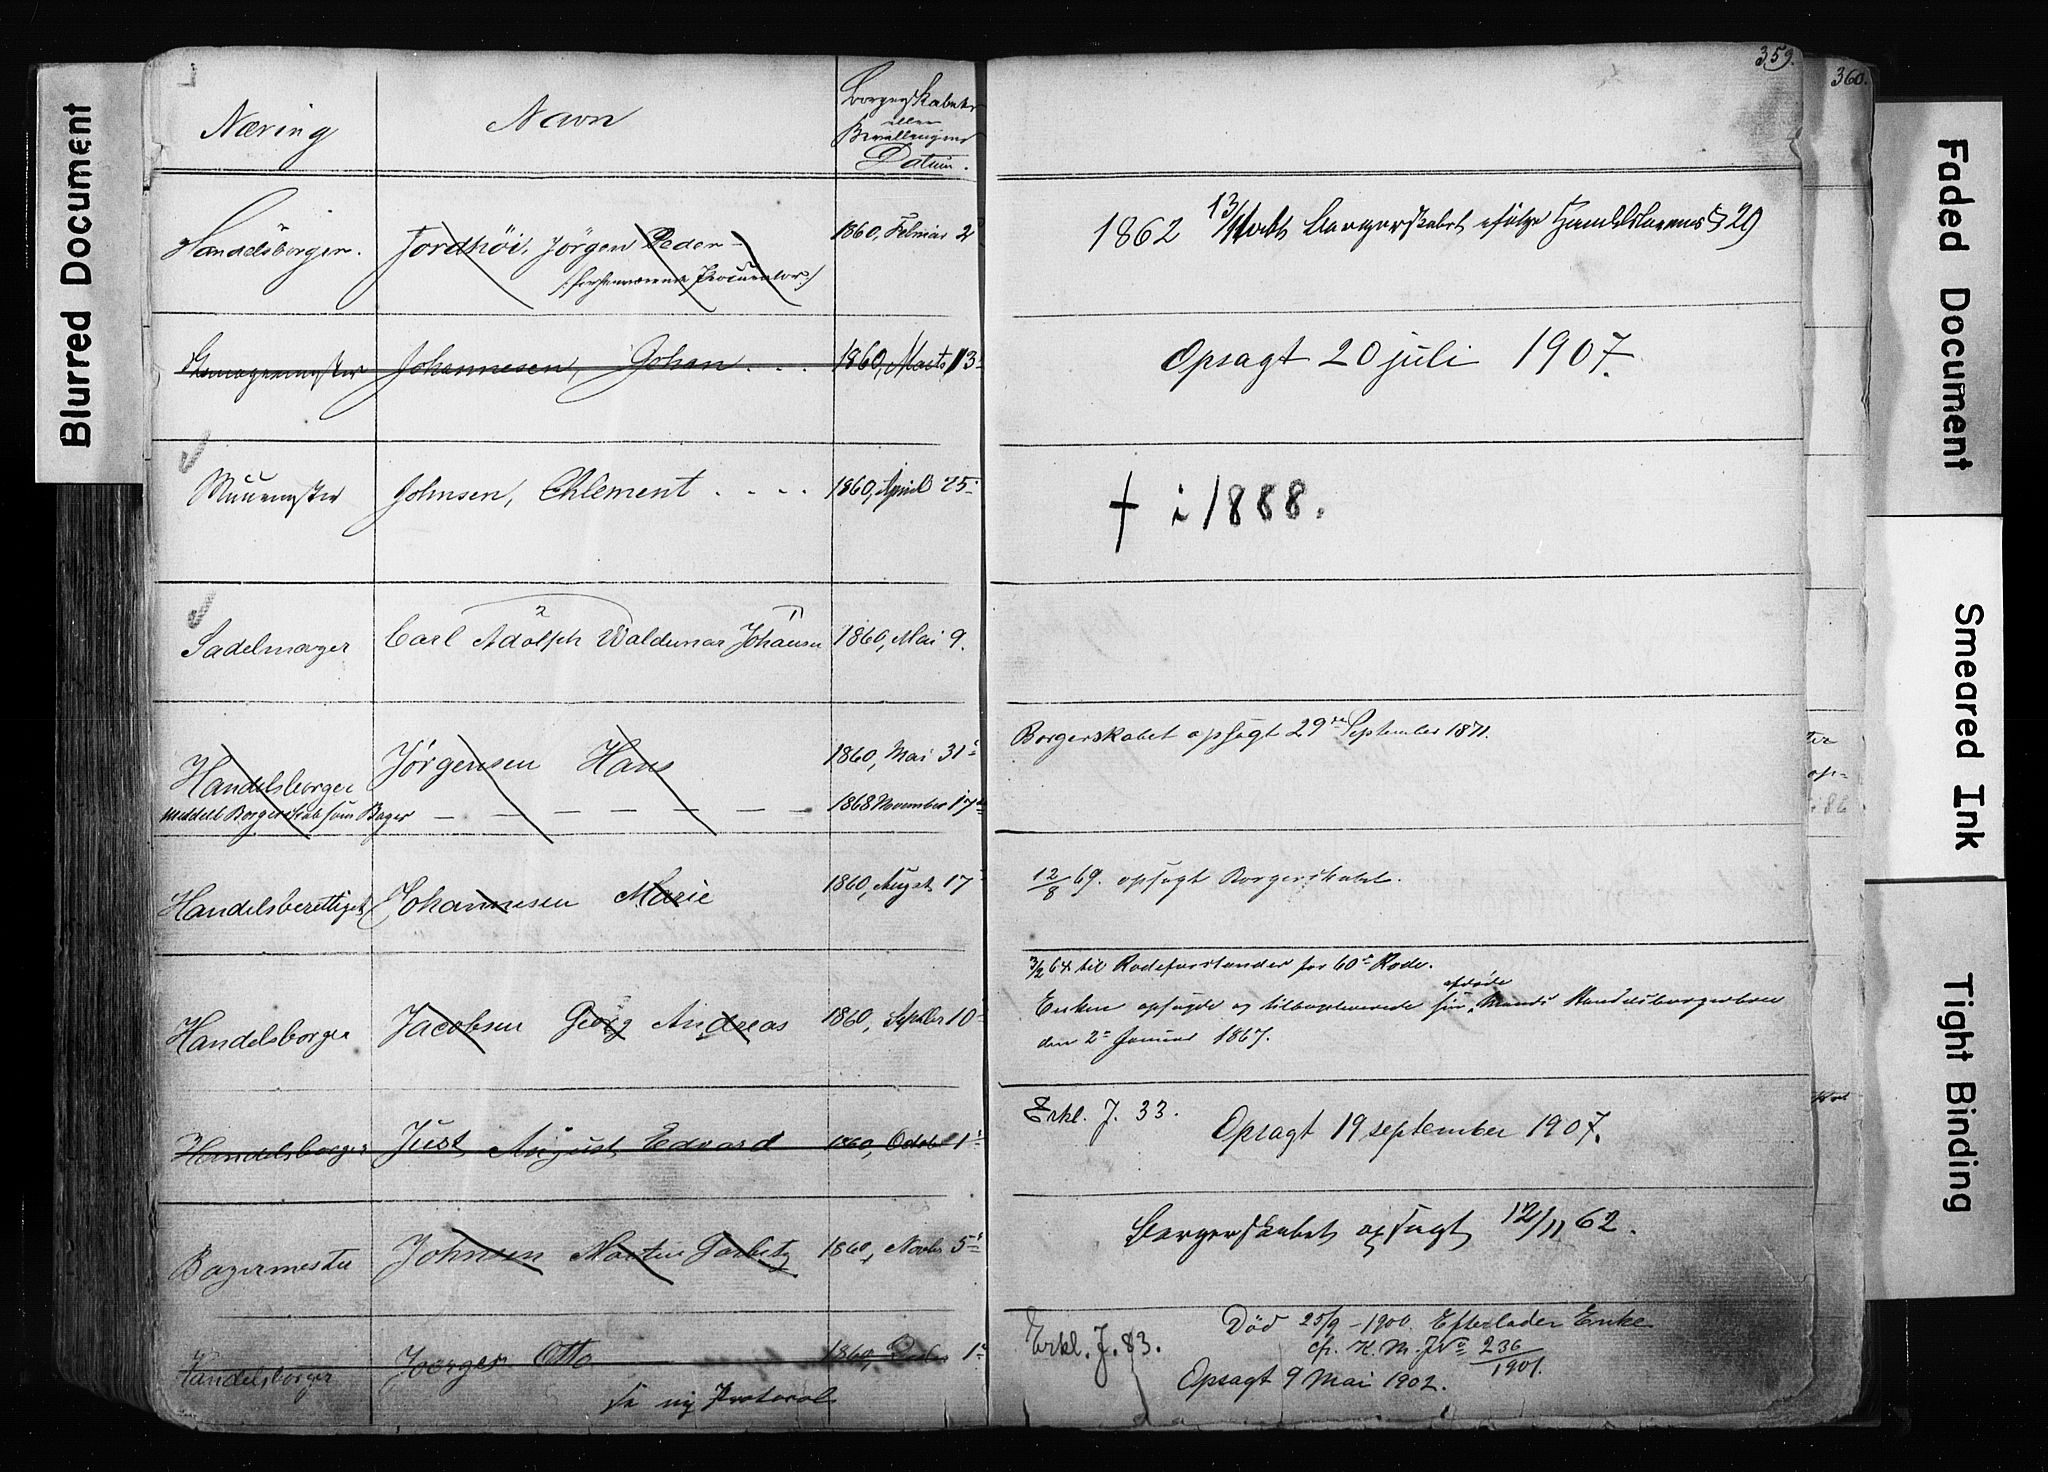 359.
360.
Blurred Document
Faded Document
Smeared Ink
Tight Binding
Næring
Navn
Borgerskabets
eller
Bevillingens
Datum.
Handelsborger.
Jordhöi, Jörgen Peder
/: forhenværende Procurator :/
1860, Februar 2
1862 13/ Borgerskabet ifølge Handelslovens § 29
Johannesen, Johan . . .
1860, Marts 13
Opsagt 20 juli 1907.
Muurmester
Johnsen, Chlement . . . .
1860, April 25
† i 1888.
2
1
Sadelmager
Carl Adolph Waldemar Johansen
1860, Mai 9.
Handelsborger
Jørgensen Hans
1860, Mai 31
Borgerskabet opsagt 29de September 1871.
meddelt Borgerskab som Bager — — — — — —
1868 November 17de
Handelsberettiget
Johannesen Marie
1860, August 17
12/8 69. opsagt Borgerskabet.
Handelsborger
Jacobsen Georg Andreas
1860, Septbr 10
3/2 64 til Rodeforstander for 60de Rode.
afdøde
Enken opsagde og tilbageleverede sin Mands Handelsborgerbrev
den 2den Januar 1867.
Handelsborger
Just August Edvard
1860, Octobr 1
Erkl. J. 33.
Opsagt 19 september 1907.
Bagermester
Johnsen Martin
1860, Novbr 5
Borgerskabet opsagt 12/11 62.
Handelsborger
Joerger Otto
1860, Decbr 1
Erkl. J. 83.
Død 25/9 - 1900. Efterlader Enke
cfr. K. M. Jr No 236/1901.
Opsagt 9 Mai 1902.
Se ny Protocol